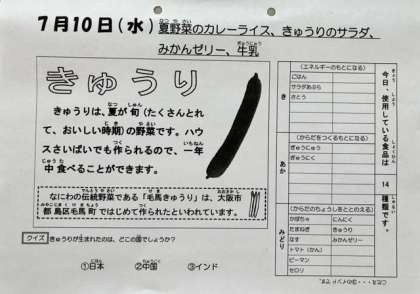 7月10日(水)夏野菜のカレーライス、きゅうりのサラダ、
みかんゼリー、牛乳
きゅうり
きゅうりは、夏が旬(たくさんとれ
て、おいしい時期)の野菜です。ハウ
スさいばいでも作られるので、一年
中食べることができます。
なにわの伝統野菜である「毛馬きゅうり」は、大阪市
都島区毛馬町ではじめて作られたといわれています。
クイズ きゅうりが生まれたのは、どこの国でしょうか?
①日本 ②中国 ③インド
今日、使用している食品は 14 種類です。
き
(エネルギーのもとになる)
ごはん
サラダあぶら
さとう
あか
(からだをつくるもとになる)
ぎゅうにゅう
ぎゅうにく
みどり
(からだのちょうしをととのえる)
かぼちゃ にんにく
たまねぎ きゅうり
なす みかんゼリー
トマト(かん)
ピーマン
セロリ
③インドです。